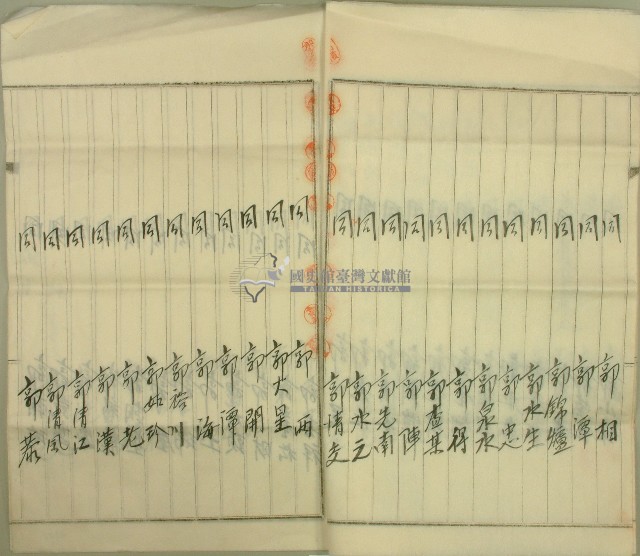 同 郭相
同 郭潭
同 郭錦爐
同 郭水生
同 郭忠
同 郭泉水
同 郭得
同 郭查某
同 郭陣
同 郭先南
同 郭水元
同 郭清文
同 郭西
同 郭大里
同 郭開
同 郭潭
同 郭海
同 郭 川
同 郭如珍
同 郭老
同 郭漢
同 郭清江
同 郭清風
同 郭
國史館臺灣文獻館
TAIWAN HISTORICA